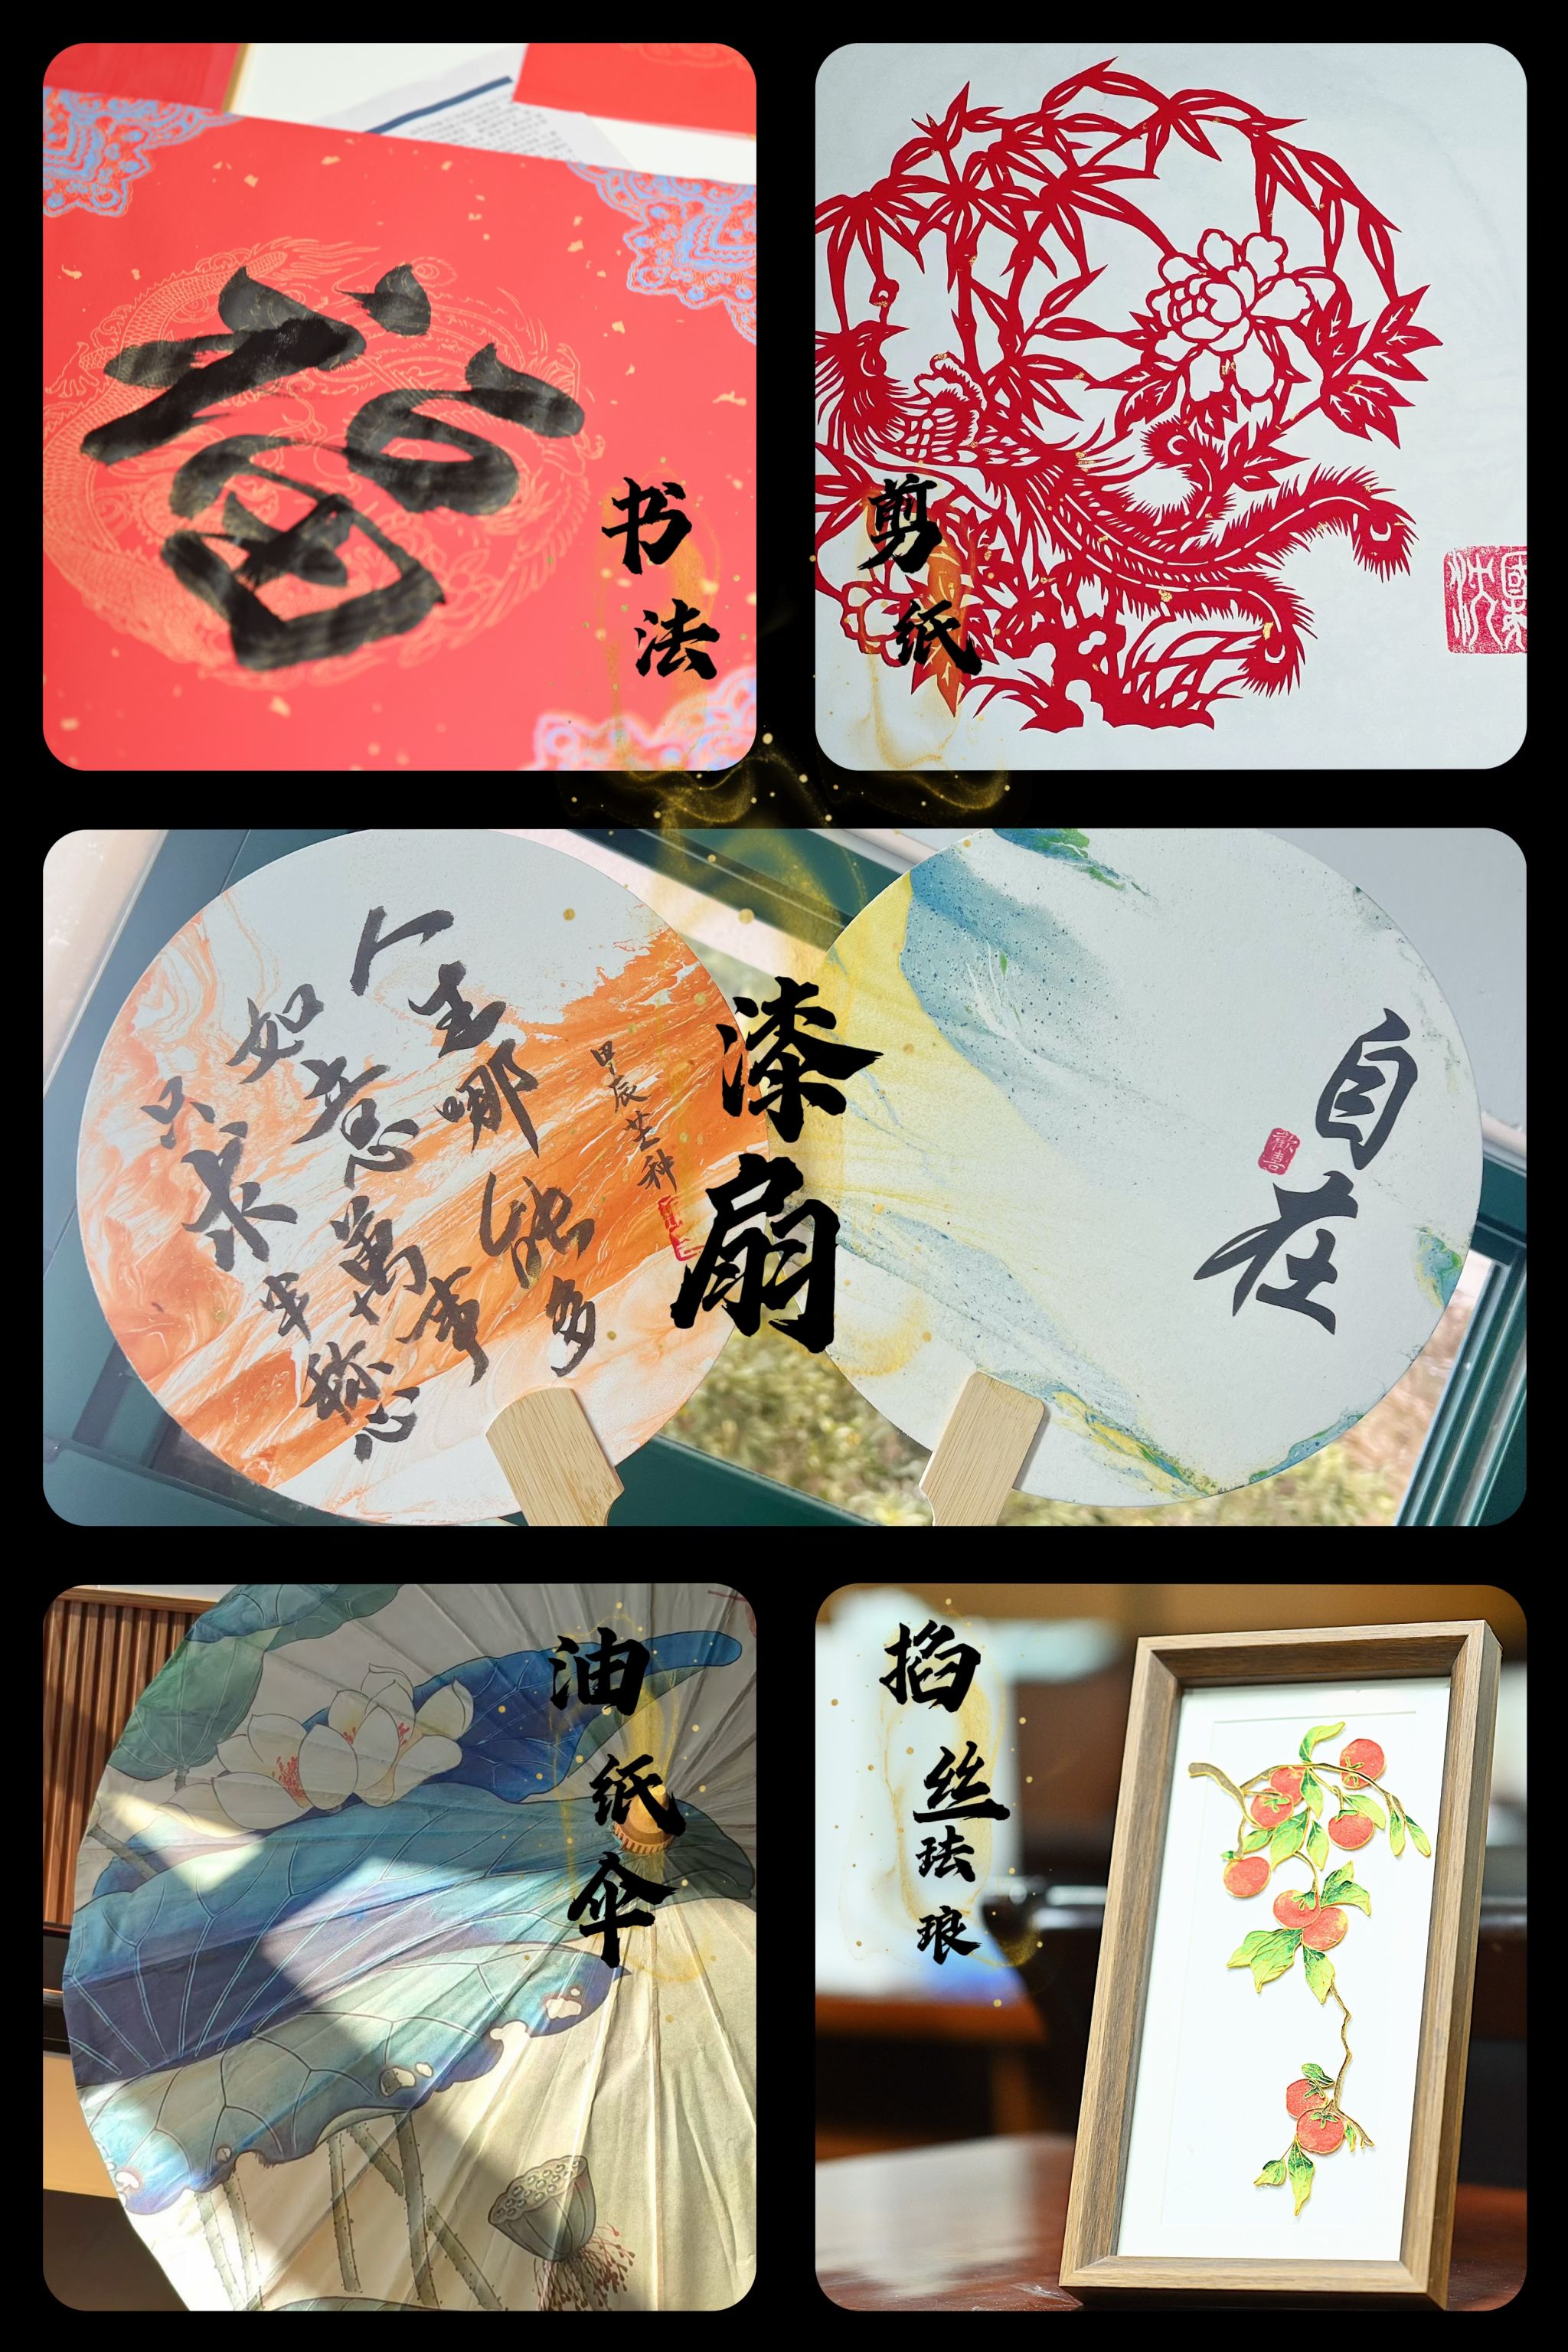 福
书法
剪纸
甲辰芒种
人生哪能多
如意萬事
只求半称心
漆扇
自在
歡喜
油纸伞
掐丝珐琅